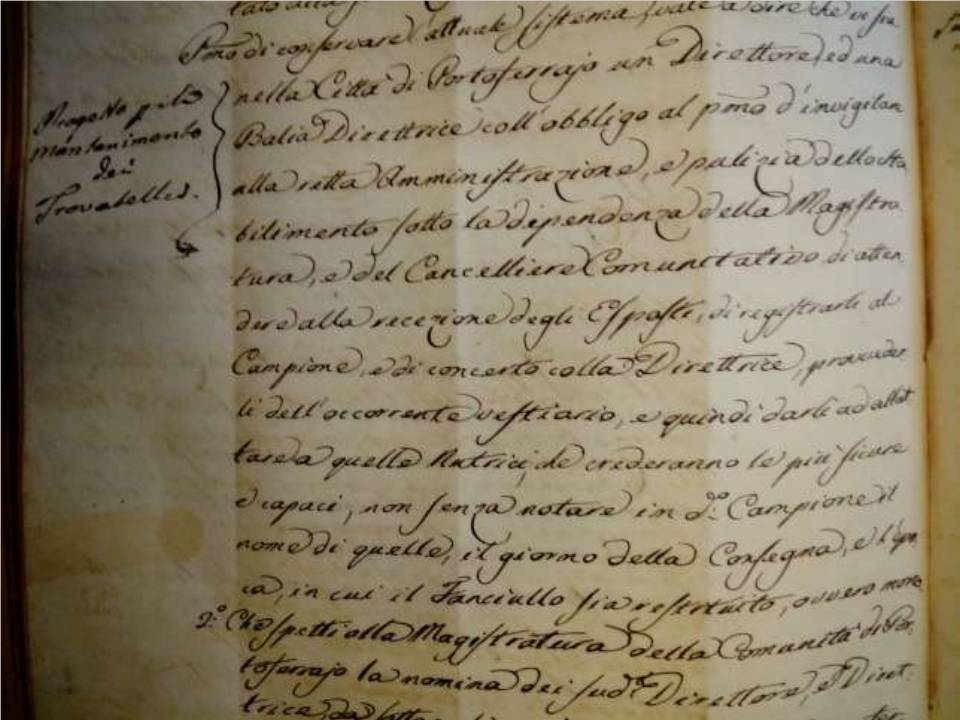 Pmo di conservare l'attuale sistema, vale a dire che vi sia
nella Città di Portoferrajo un Direttore, ed una
Balia Direttrice coll'obbligo al pmo d'invigilare
alla retta Amministrazione, e pulizia dello sta
bilimento sotto la dipendenza della Magistra
tura, e del Cancelliere Comunitativo di atten
dere alla recezione degli Esposti, di registrarli al
Campione, e di concerto colla Direttrice, proveder
li dell'occorrente vestiario, e quindi darli ad allat
tare a quelle Nutrici, che crederanno le più sicure
e capaci, non senza notare in do: Campione il
nome di quelle, il giorno della Consegna, e l'epo
ca, in cui il Fanciullo sia restituito, ovvero morto
2o: Che spetti alla Magistratura della Comunità di Por
toferrajo la nomina dei sudi Direttore, e Diret
trice, da
Progetto p il
mantenimento
dei
Trovatelli.